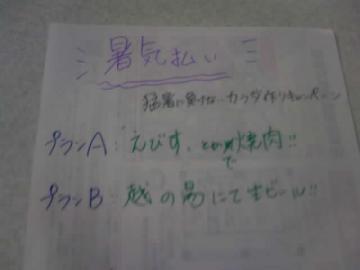 暑気払い
猛暑に負けないカラダ作りキャンペーン
プランA:えびす、とかで焼肉!!
プランB:越の湯にて生ビール!!